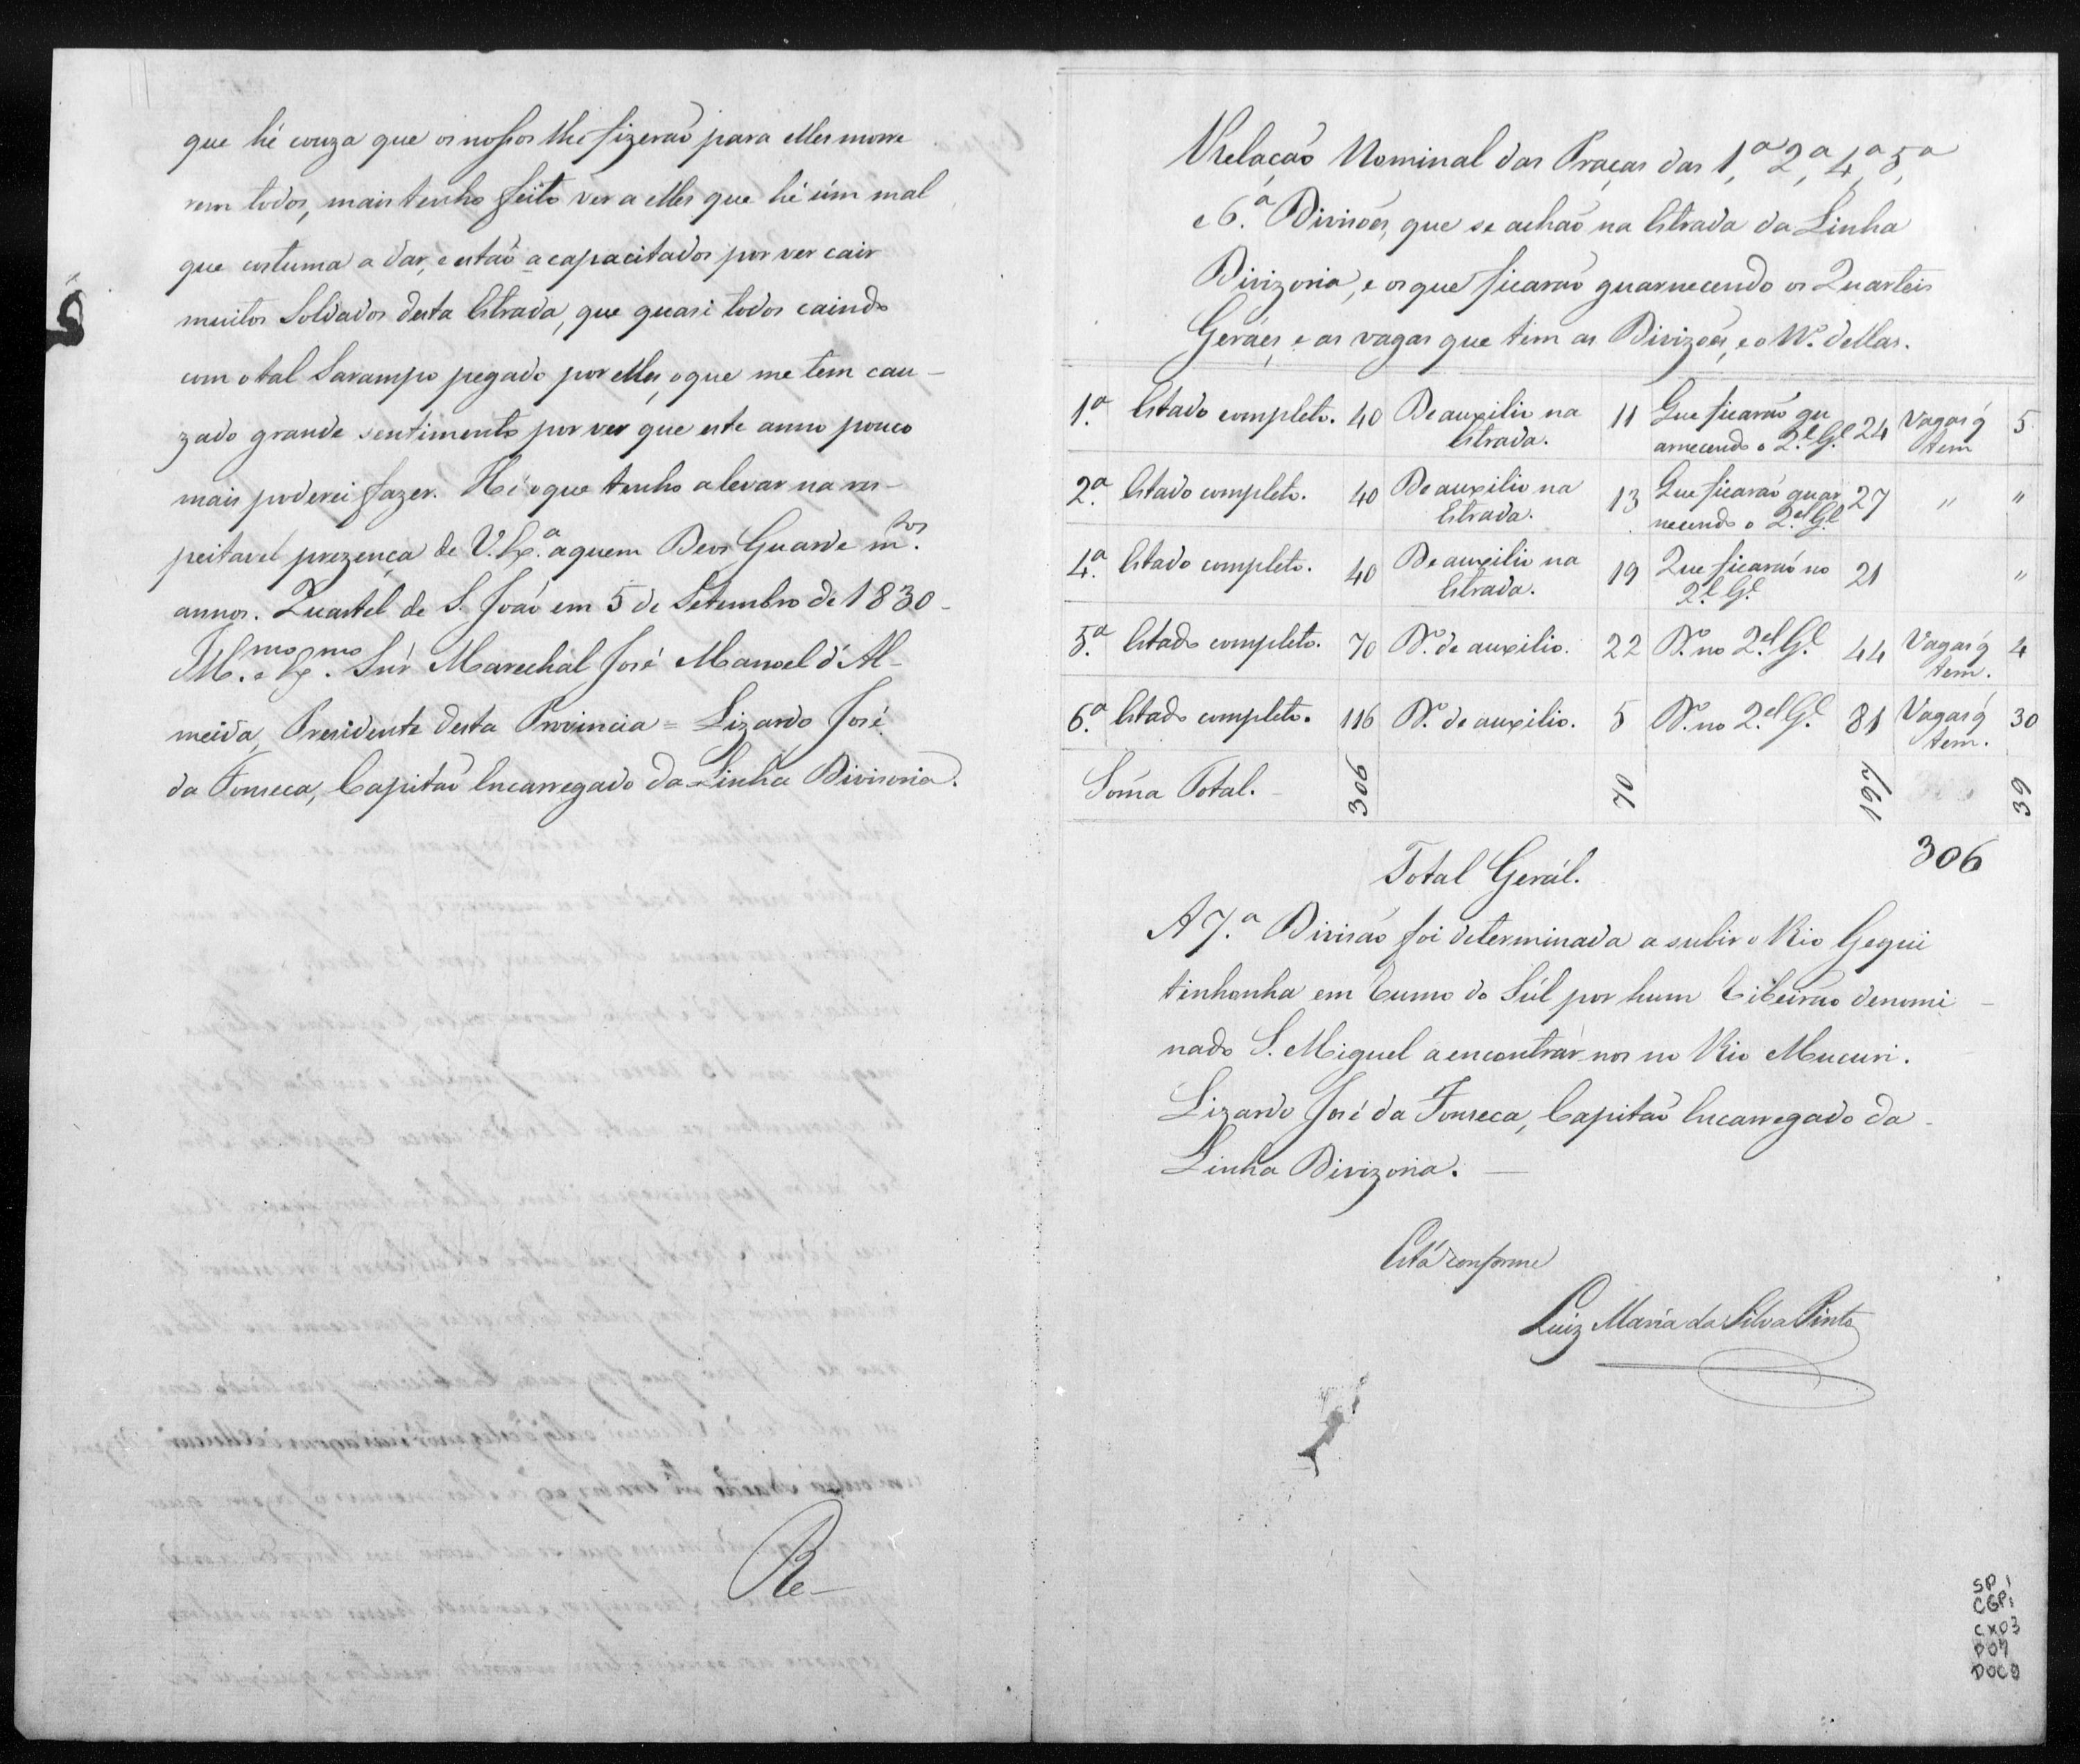 que hé couza que os nossos lhe fizerão para elles morre
rem todos, mais tenho feito ver a elles que hé úm mal
que costuma a dar, e estaõ acapacitados por ver cair
muitos Soldados desta Estrada, que quasi todos caindo
com o tal Sarampo pegado por elles, o que me tem cau-
zado grande sentimento por ver que este anno pouco
mais poderei fazer. Hé o que tenho a levar na res-
peitavel prezença de V. Ex.ª a quem Deos Guarde m.tos
annos. Quartel de S. João em 5 de Setembro de 1830-
Ill.mo e Ex.mo Snr Marechal José Manoel d'Al-
meida, Presidente desta Provincia = Lizardo José
da Fonseca, Capitaõ Encarregado da Linha Divisoria.
Re-
Relação Nominal das Praças das 1.ª, 2.ª, 4.ª, 5.ª,
e 6.ª Divisões, que se achaõ na Estrada da Linha
Divizoria, e os que ficaraõ guarnecendo os Quarteis
Geráes, e as vagas que tem as Divizões, e o N.º dellas.
1.ª Estado completo. 40 De auxilio na Estrada. 11 Que ficaraõ gu arnecendo o Q.el G.l 24 Vagas q̃ tem 5
2.ª Estado completo. 40 De auxilio na Estrada. 13 Que ficaraõ guar necendo o Q.el G.l 27 " "
4.ª Estado completo. 40 De auxilio na Estrada. 19 Que ficaraõ no Q.el G.l 21 "
5.ª Estado completo. 70 D.º de auxilio. 22 D.º no Q.el G.l 44 Vagas q̃ tem. 4
6.ª Estado completo. 116 D.º de auxilio. 5 D.º no Q.el G.l 81 Vagas q̃ tem. 30
Sôma Total. 306 70 197 39
Total Gerál. 306
A 7.ª Divisão foi determinada a subir o Rio Gequi
tinhonha em Cumo do Súl por hum Ribeiraõ denomi-
nado S. Miguel a encontrár-nos no Rio Mucuri.
Lizardo José da Fonseca, Capitaõ Encarregado da
Linha Divizoria.
Está conforme
Luiz Maria da Silva Pinto
SP 1
CGP1
CX03
D07